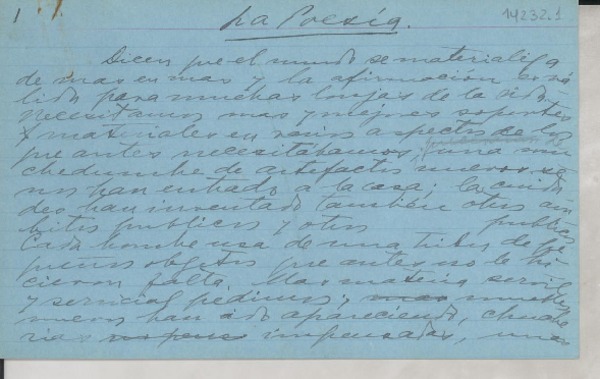 1
14232.1
La Poesía.
Dicen que el mundo se materializa
de mas en mas y la afirmación es vá
lida para muchas lonjas de la vida.
Necesitamos mas y mejores soportes
materiales en varios aspectos de los
que antes necesitábamos, una mu
chedumbre de artefactos nuevos se
nos han entrado a la casa; la ciuda
des han inventado también otros ám
bitos publicos y otros publicos
Cada hombre usa de una tribu de pe
queños objetos que antes no le hi
cieron falta. Mas materia servil
y servicial pedimos; mas muebles
nuevos han ido apareciendo,
rias impensadas, unas